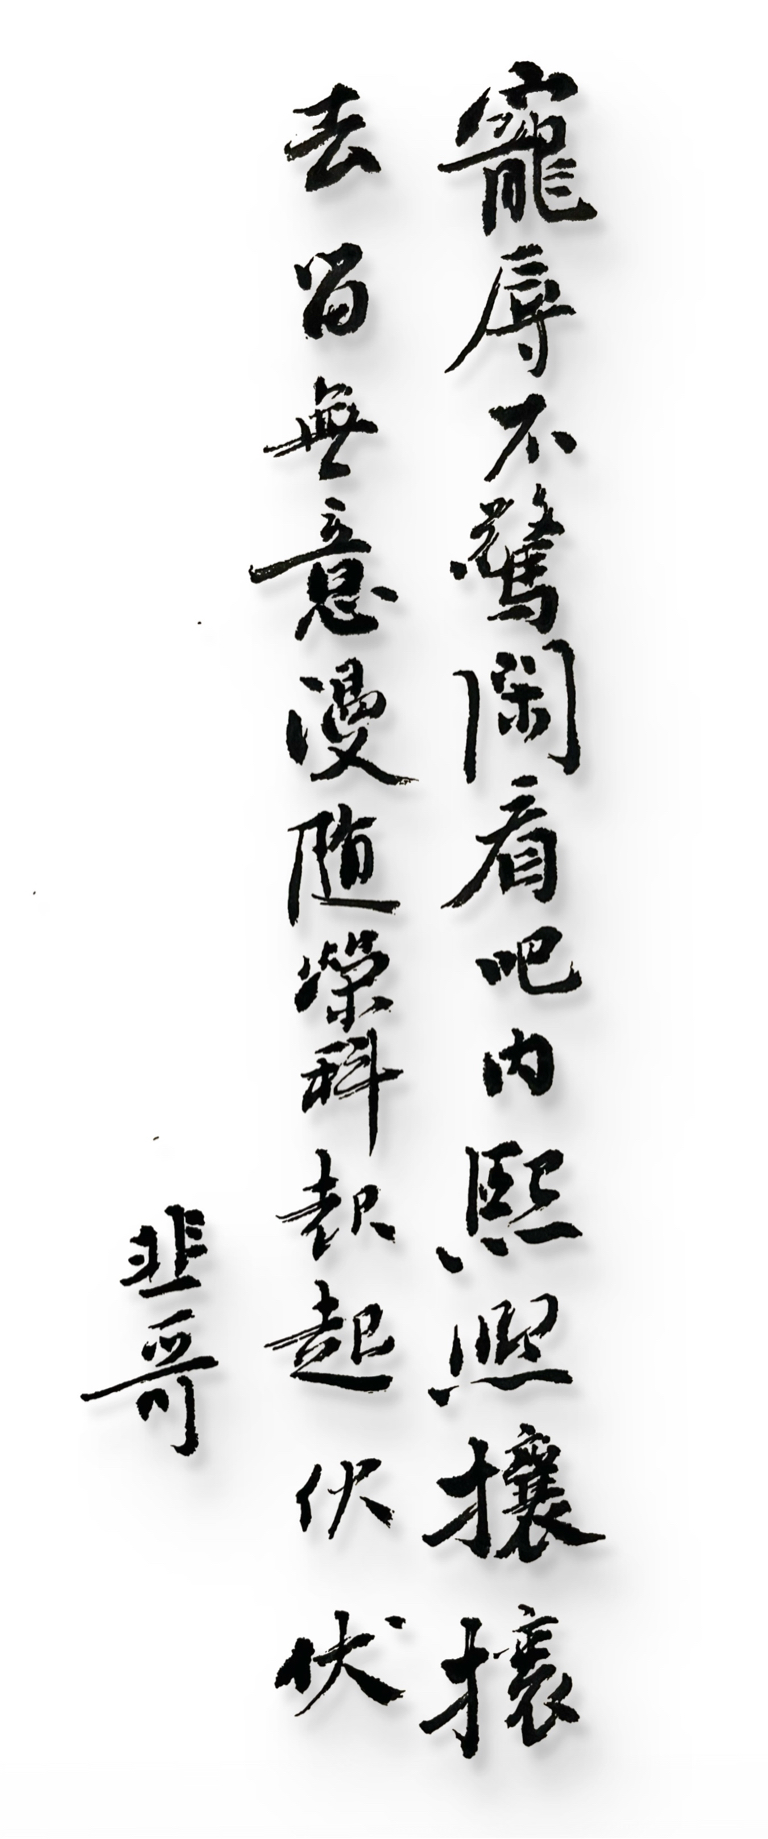 寵辱不驚閑看吧内熙熙攘攘
去留無意漫随榮科起起伏伏
韭哥